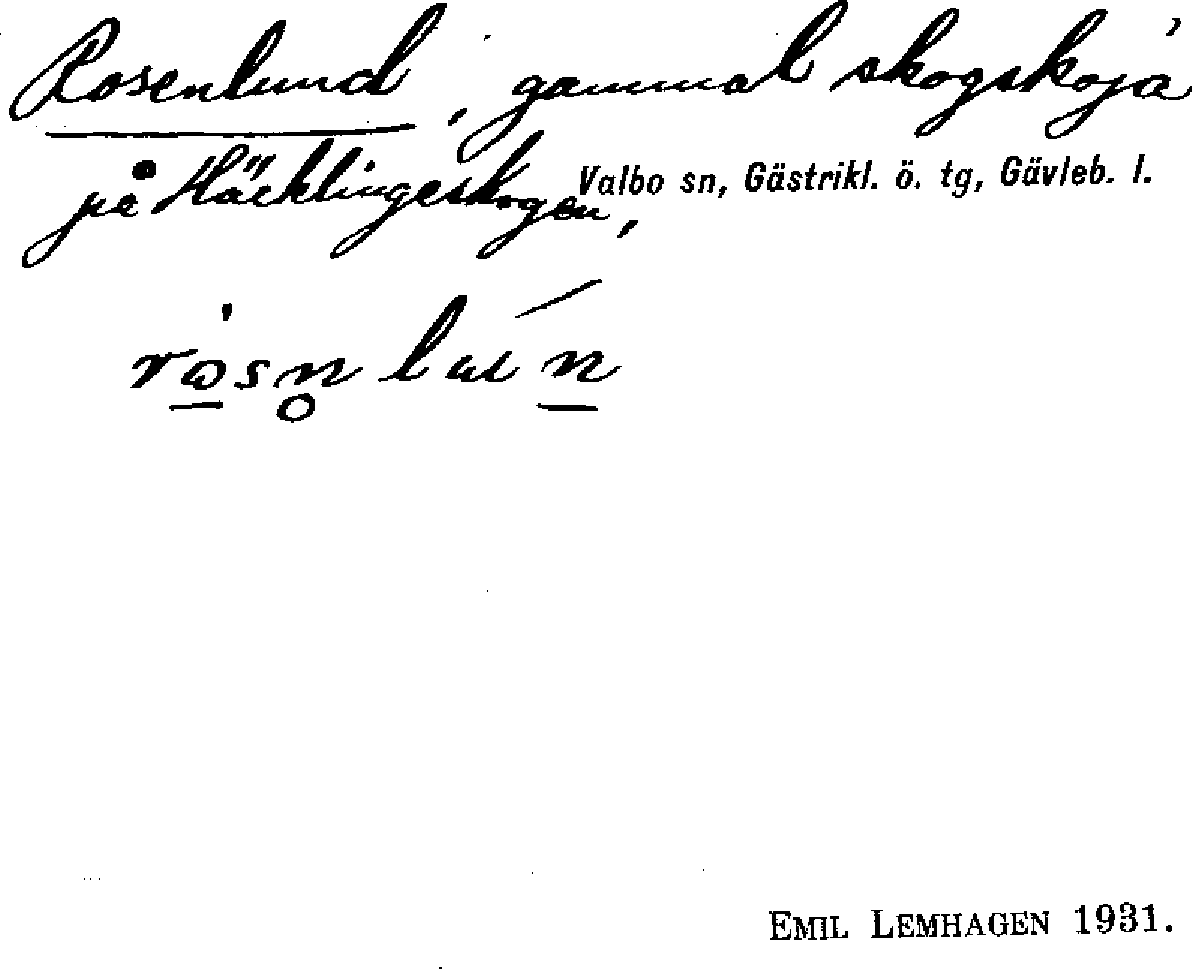 Rosenlund, gammal skogskoja
på Häcklingeskogen,
Valbo sn, Gästrikl. ö. tg, Gävleb. l.
EMIL LEMHAGEN 1931.